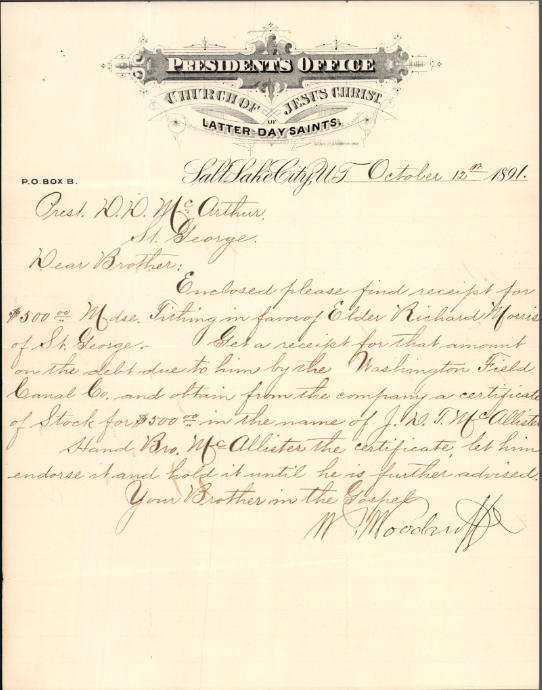 PRESIDENT'S OFFICE
CHURCH OF JESUS CHRIST
OF
LATTER-DAY SAINTS.
P.O. BOX B.
Salt Lake City, U.T. October 12th 1891.
Prest. D. D. McArthur,
St. George.
Dear Brother:
Enclosed please find receipt for
$500 00 Mdse. Tithing in favor of Elder Richard Morris
of St. George. Get a receipt for that amount
on the debt due to him by the Washington Field
Canal Co, and obtain from the company a certificate
of Stock for $500 00 in the name of J. D. T. McAllister
Hand Bro. McAllister the certificate, let him
endorse it and hold it until he is further advised.
Your Brother in the Gospel
W. Woodruff